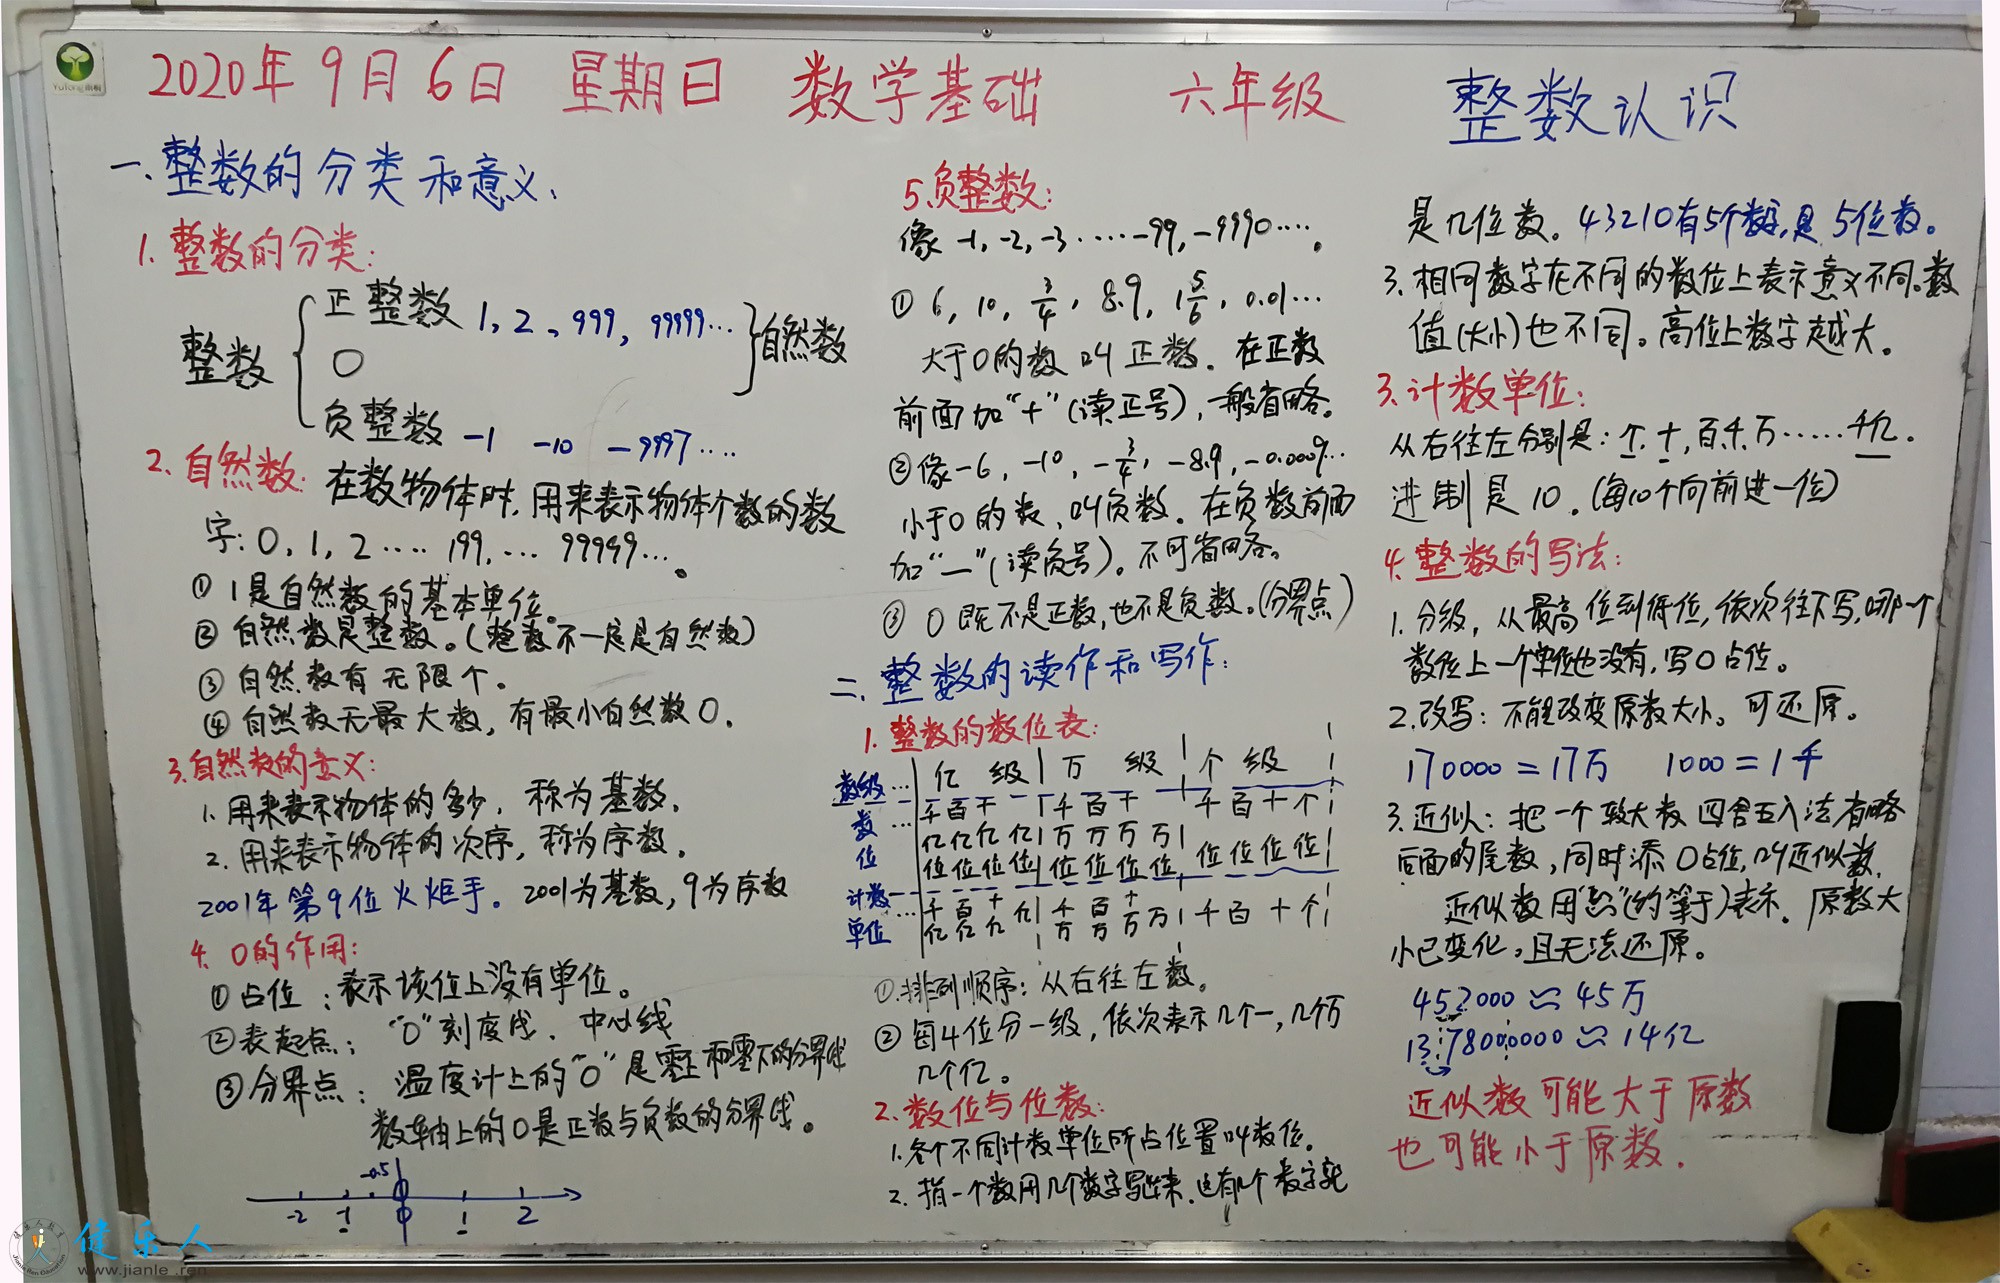 Yutong雨桐
2020年9月6日 星期日 数学基础 六年级 整数认识
一、整数的分类和意义、
1. 整数的分类:
整数
正整数 1, 2、999, 99999…
0
自然数
负整数 -1 -10 -9997‥‥
2. 自然数: 在数物体时, 用来表示物体个数的数
字: 0, 1, 2‥‥ 199, … 99999…。
① 1是自然数的基本单位。
② 自然数是整数。(整数不一定是自然数)
③ 自然数有无限个。
④ 自然数无最大数, 有最小自然数0.
3.自然数的意义:
1. 用来表示物体的多少, 称为基数.
2. 用来表示物体的次序, 称为序数.
2001年第9位火炬手。2001为基数, 9为序数
4. 0的作用:
① 占位: 表示该位上没有单位。
② 表起点: "0"刻度线. 中心线
③ 分界点: 温度计上的"0"是零上和零下的分界线
数轴上的0是正数与负数的分界线。
-0.5
-2 -1 0 1 2
5.负整数:
像 -1, -2, -3‥‥‥-99, -9990‥‥。
① 6, 10, 3/4, 8.9, 1 5/6, 0.01…
大于0的数叫正数. 在正数
前面加"+"(读正号), 一般省略。
② 像-6, -10, -3/4, -8.9, -0.0009…
小于0的数, 叫负数. 在负数前面
加"—"(读负号)。不可省略。
③ 0既不是正数, 也不是负数。(分界点)
二、整数的读作和写作:
1. 整数的数位表:
数级… 亿 级 万 级 个 级
数位… 千亿位 百亿位 十亿位 亿位 千万位 百万位 十万位 万位 千位 百位 十位 个位
计数单位… 千亿 百亿 十亿 亿 千万 百万 十万 万 千 百 十 个
①.排列顺序: 从右往左数。
② 每4位分一级, 依次表示几个一, 几个万
几个亿。
2. 数位与位数:
1. 各个不同计数单位所占位置叫数位。
2. 指一个数用几个数字写出来. 有几个数字就
是几位数。43210有5个数字, 是5位数。
3. 相同数字在不同的数位上表示意义不同。数
值(大小)也不同。高位上数字越大。
3. 计数单位:
从右往左分别是: 个. 十, 百. 千. 万‥‥‥千亿.
进制是10. (每10个向前进一位)
4. 整数的写法:
1. 分级, 从最高位到低位, 依次往下写, 哪一个
数位上一个单位也没有, 写0占位。
2.改写: 不能改变原数大小。可还原。
170000=17万 1000=1千
3. 近似: 把一个较大数四舍五入法省略
后面的尾数, 同时添0占位, 叫近似数.
近似数用"≈"(约等于)表示. 原数大
小已变化, 且无法还原。
452000≈45万
1378000000≈14亿
近似数可能大于原数
也可能小于原数.
健乐人
www.jianle.ren